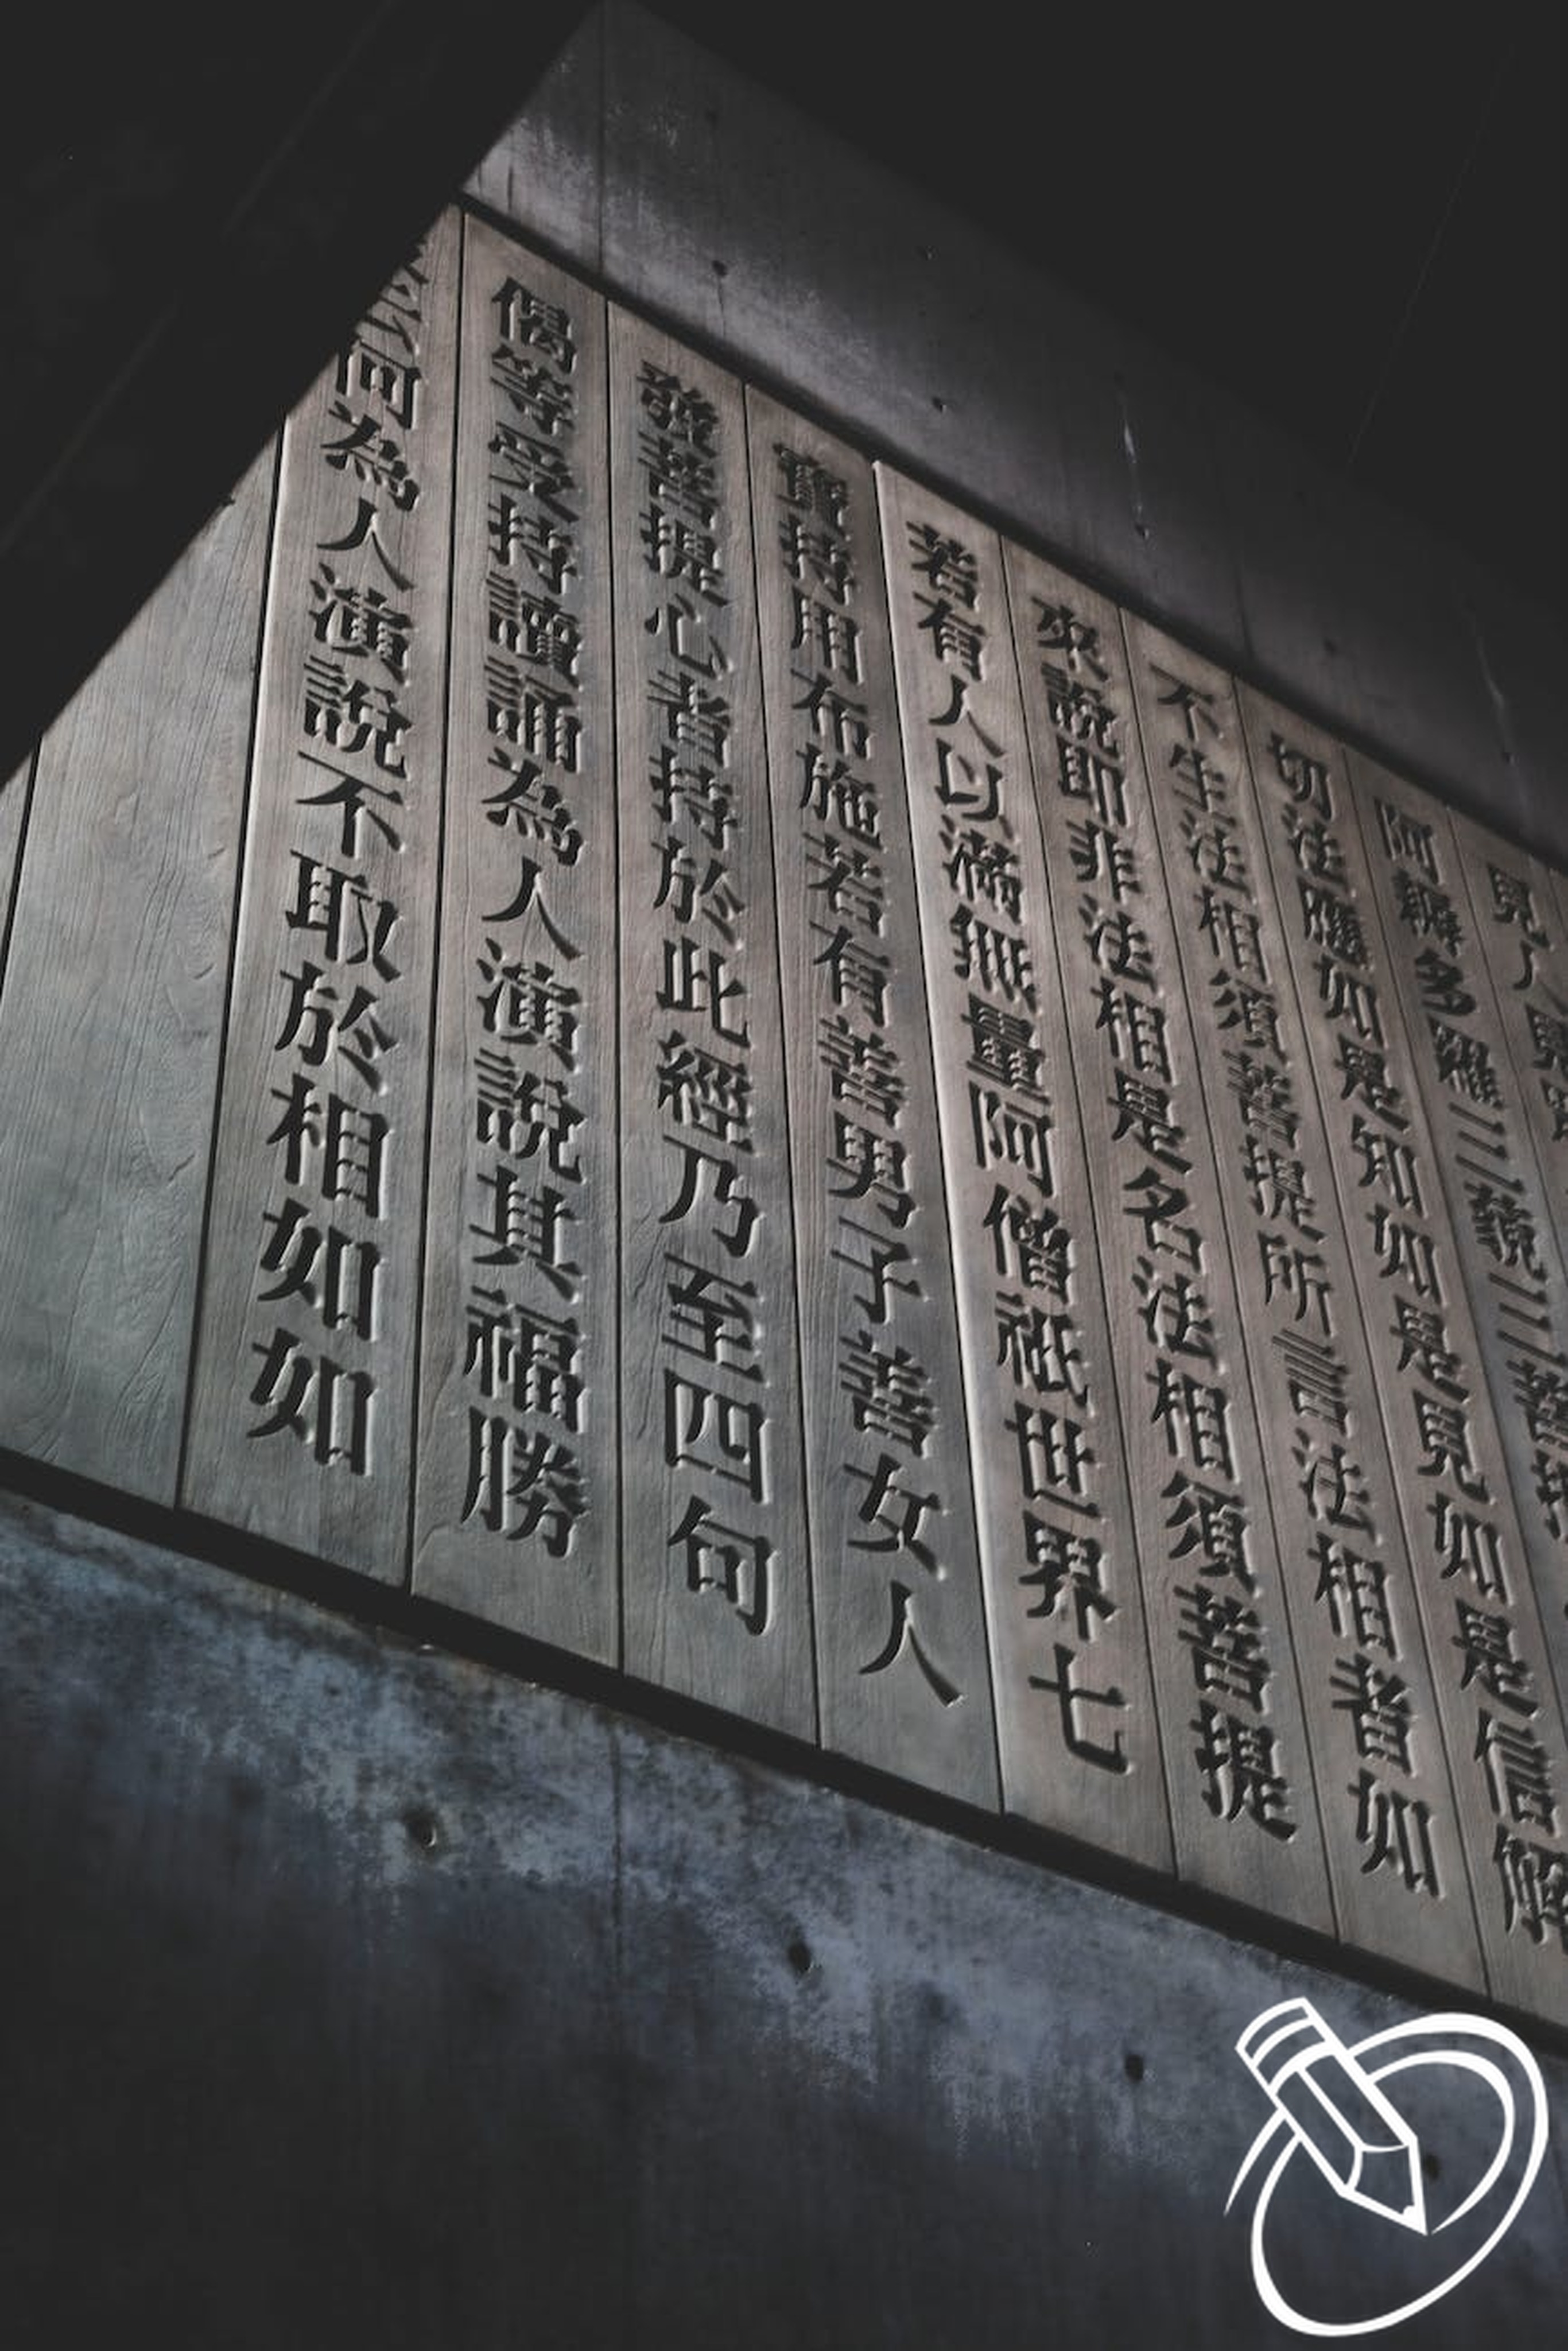 見人見眾
阿耨多羅三藐三菩提
切法應如是知如是見如是信解
不生法相須菩提所言法相者如
來說即非法相是名法相須菩提
若有人以滿無量阿僧祇世界七
寶持用布施若有善男子善女人
發菩提心者持於此經乃至四句
偈等受持讀誦為人演說其福勝
云何為人演說不取於相如如